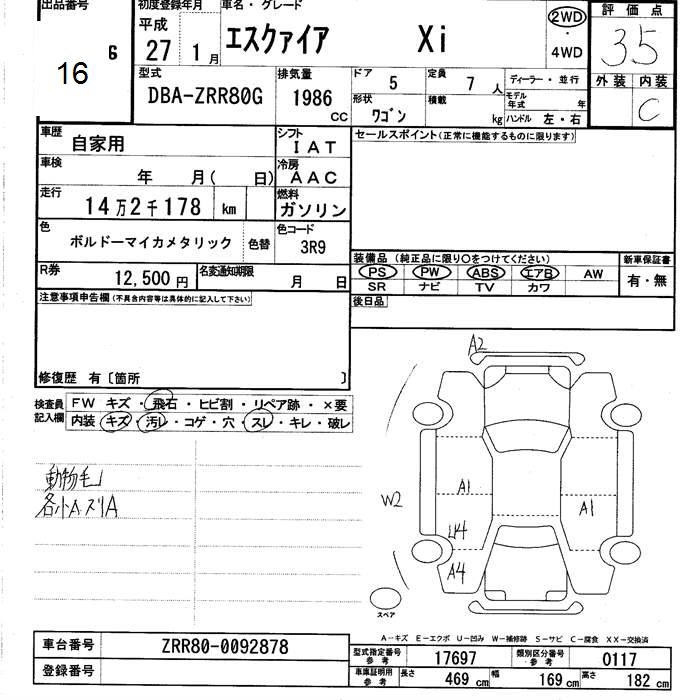 出品番号
16
6
初度登録年月
平成
27 1月
車名・グレード
エスクァイア Xi
2WD
・
4WD
評価点
35
外装 内装
C
型式
DBA-ZRR80G
排気量
1986
CC
ドア
5
定員
7 人
形状
ワゴン
積載
kg
ディーラー・並行
モデル年式 年
ハンドル 左・右
車歴
自家用
シフト
IAT
車検
年 月( 日)
冷房
AAC
走行
14万2千178 km
燃料
ガソリン
色
ボルドーマイカメタリック 色替
色コード
3R9
R券
12,500円
名変通知期限
月 日
セールスポイント(正常に機能するものに限ります)
装備品 (純正品に限り○をつけてください)
PS PW ABS エアB AW
SR ナビ TV カワ
新車保証書
有・無
後日品
注意事項申告欄(不具合内容等は具体的に記入して下さい)
修復歴 有〔箇所 〕
検査員記入欄
FW キズ・飛石・ヒビ割・リペア跡・×要
内装 キズ・汚レ・コゲ・穴・スレ・キレ・破レ
動物毛
各小A.スリA
A2
W2
A1
A1
U4
A4
スペア
A-キズ E-エクボ U-凹み W-補修跡 S-サビ C-腐食 XX-交換済
車台番号 ZRR80-0092878
登録番号
型式指定番号 参考 17697
類別区分番号 参考 0117
車庫証明用 参考 長さ 469 cm 幅 169 cm 高さ 182 cm